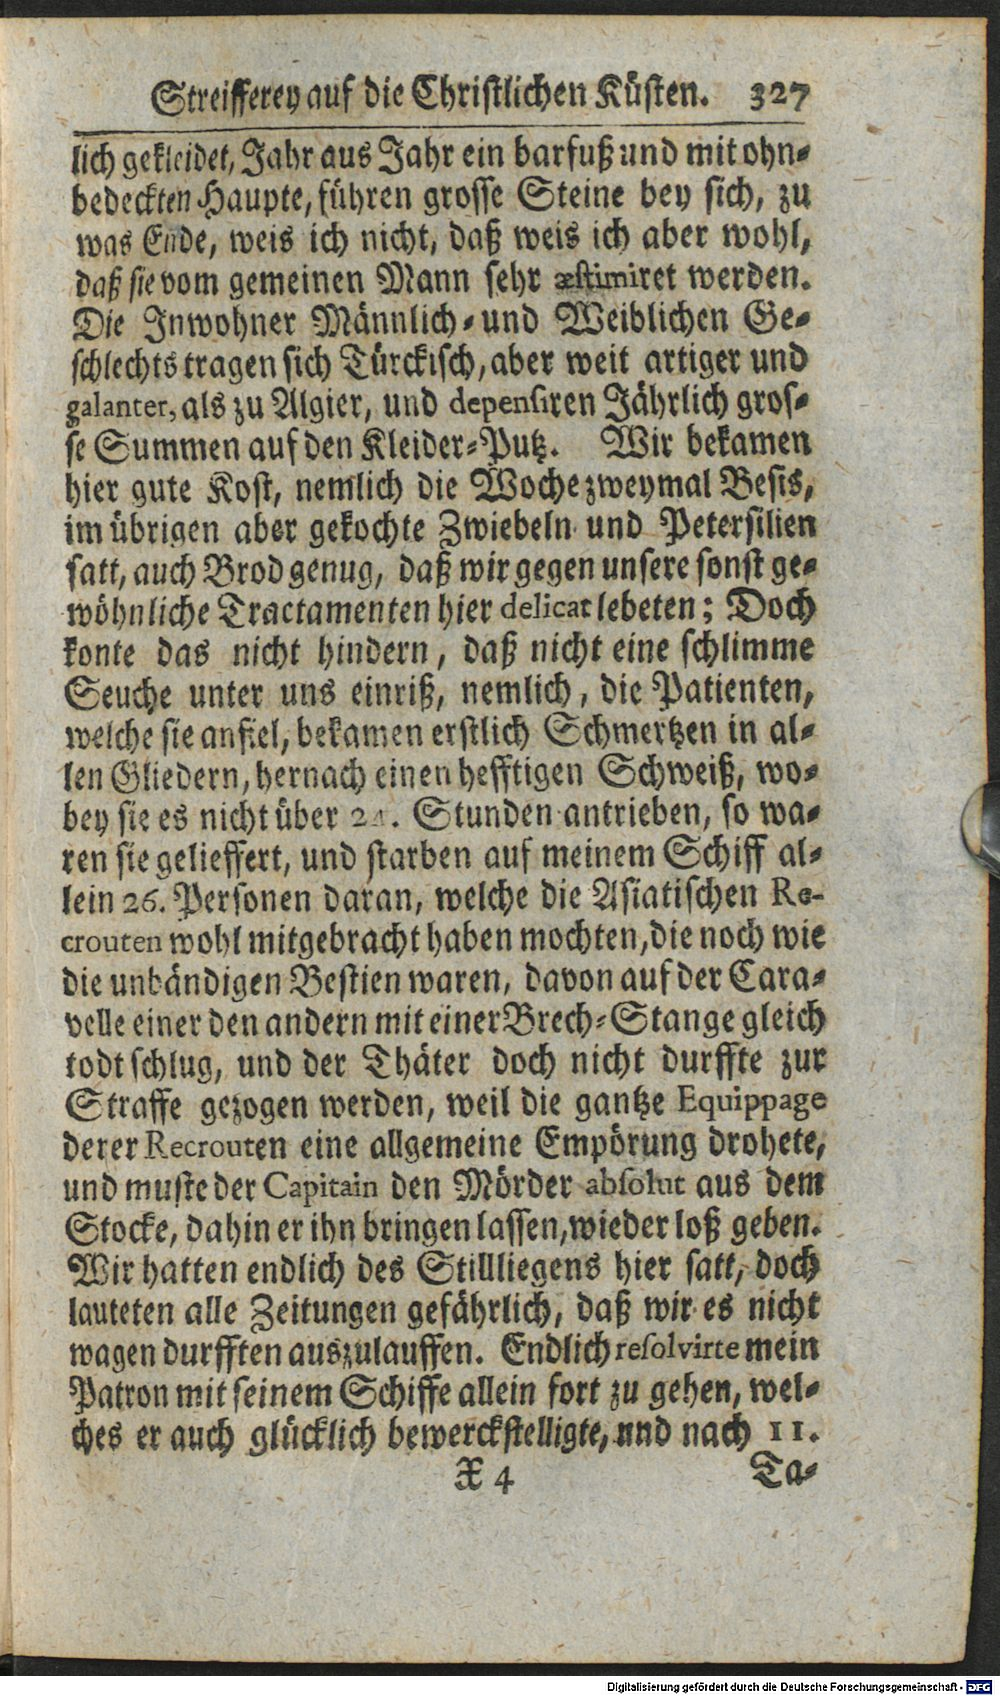 Streifferey auf die Christlichen Küsten. 327
lich gekleidet, Jahr aus Jahr ein barfuß und mit ohn-
bedeckten Haupte, führen grosse Steine bey sich, zu
was Ende, weis ich nicht, daß weis ich aber wohl,
daß sie vom gemeinen Mann sehr æstimiret werden.
Die Inwohner Männlich- und Weiblichen Ge-
schlechts tragen sich Türckisch, aber weit artiger und
galanter, als zu Algier, und depensiren Jährlich gros-
se Summen auf den Kleider-Putz. Wir bekamen
hier gute Kost, nemlich die Woche zweymal Besis,
im übrigen aber gekochte Zwiebeln und Petersilien
satt, auch Brod genug, daß wir gegen unsere sonst ge-
wöhnliche Tractamenten hier delicat lebeten; Doch
konte das nicht hindern, daß nicht eine schlimme
Seuche unter uns einriß, nemlich, die Patienten,
welche sie anfiel, bekamen erstlich Schmertzen in al-
len Gliedern, hernach einen hefftigen Schweiß, wo-
bey sie es nicht über 24. Stunden antrieben, so wa-
ren sie gelieffert, und starben auf meinem Schiff al-
lein 26. Personen daran, welche die Asiatischen Re-
crouten wohl mitgebracht haben mochten, die noch wie
die unbändigen Bestien waren, davon auf der Cara-
velle einer den andern mit einer Brech-Stange gleich
todt schlug, und der Thäter doch nicht durffte zur
Straffe gezogen werden, weil die gantze Equippage
derer Recrouten eine allgemeine Empörung drohete,
und muste der Capitain den Mörder absolut aus dem
Stocke, dahin er ihn bringen lassen, wieder loß geben.
Wir hatten endlich des Stillliegens hier satt, doch
lauteten alle Zeitungen gefährlich, daß wir es nicht
wagen durfften auszulauffen. Endlich resolvirte mein
Patron mit seinem Schiffe allein fort zu gehen, wel-
ches er auch glücklich bewerckstelligte, und nach 11.
X 4 Ta-
Digitalisierung gefördert durch die Deutsche Forschungsgemeinschaft - DFG